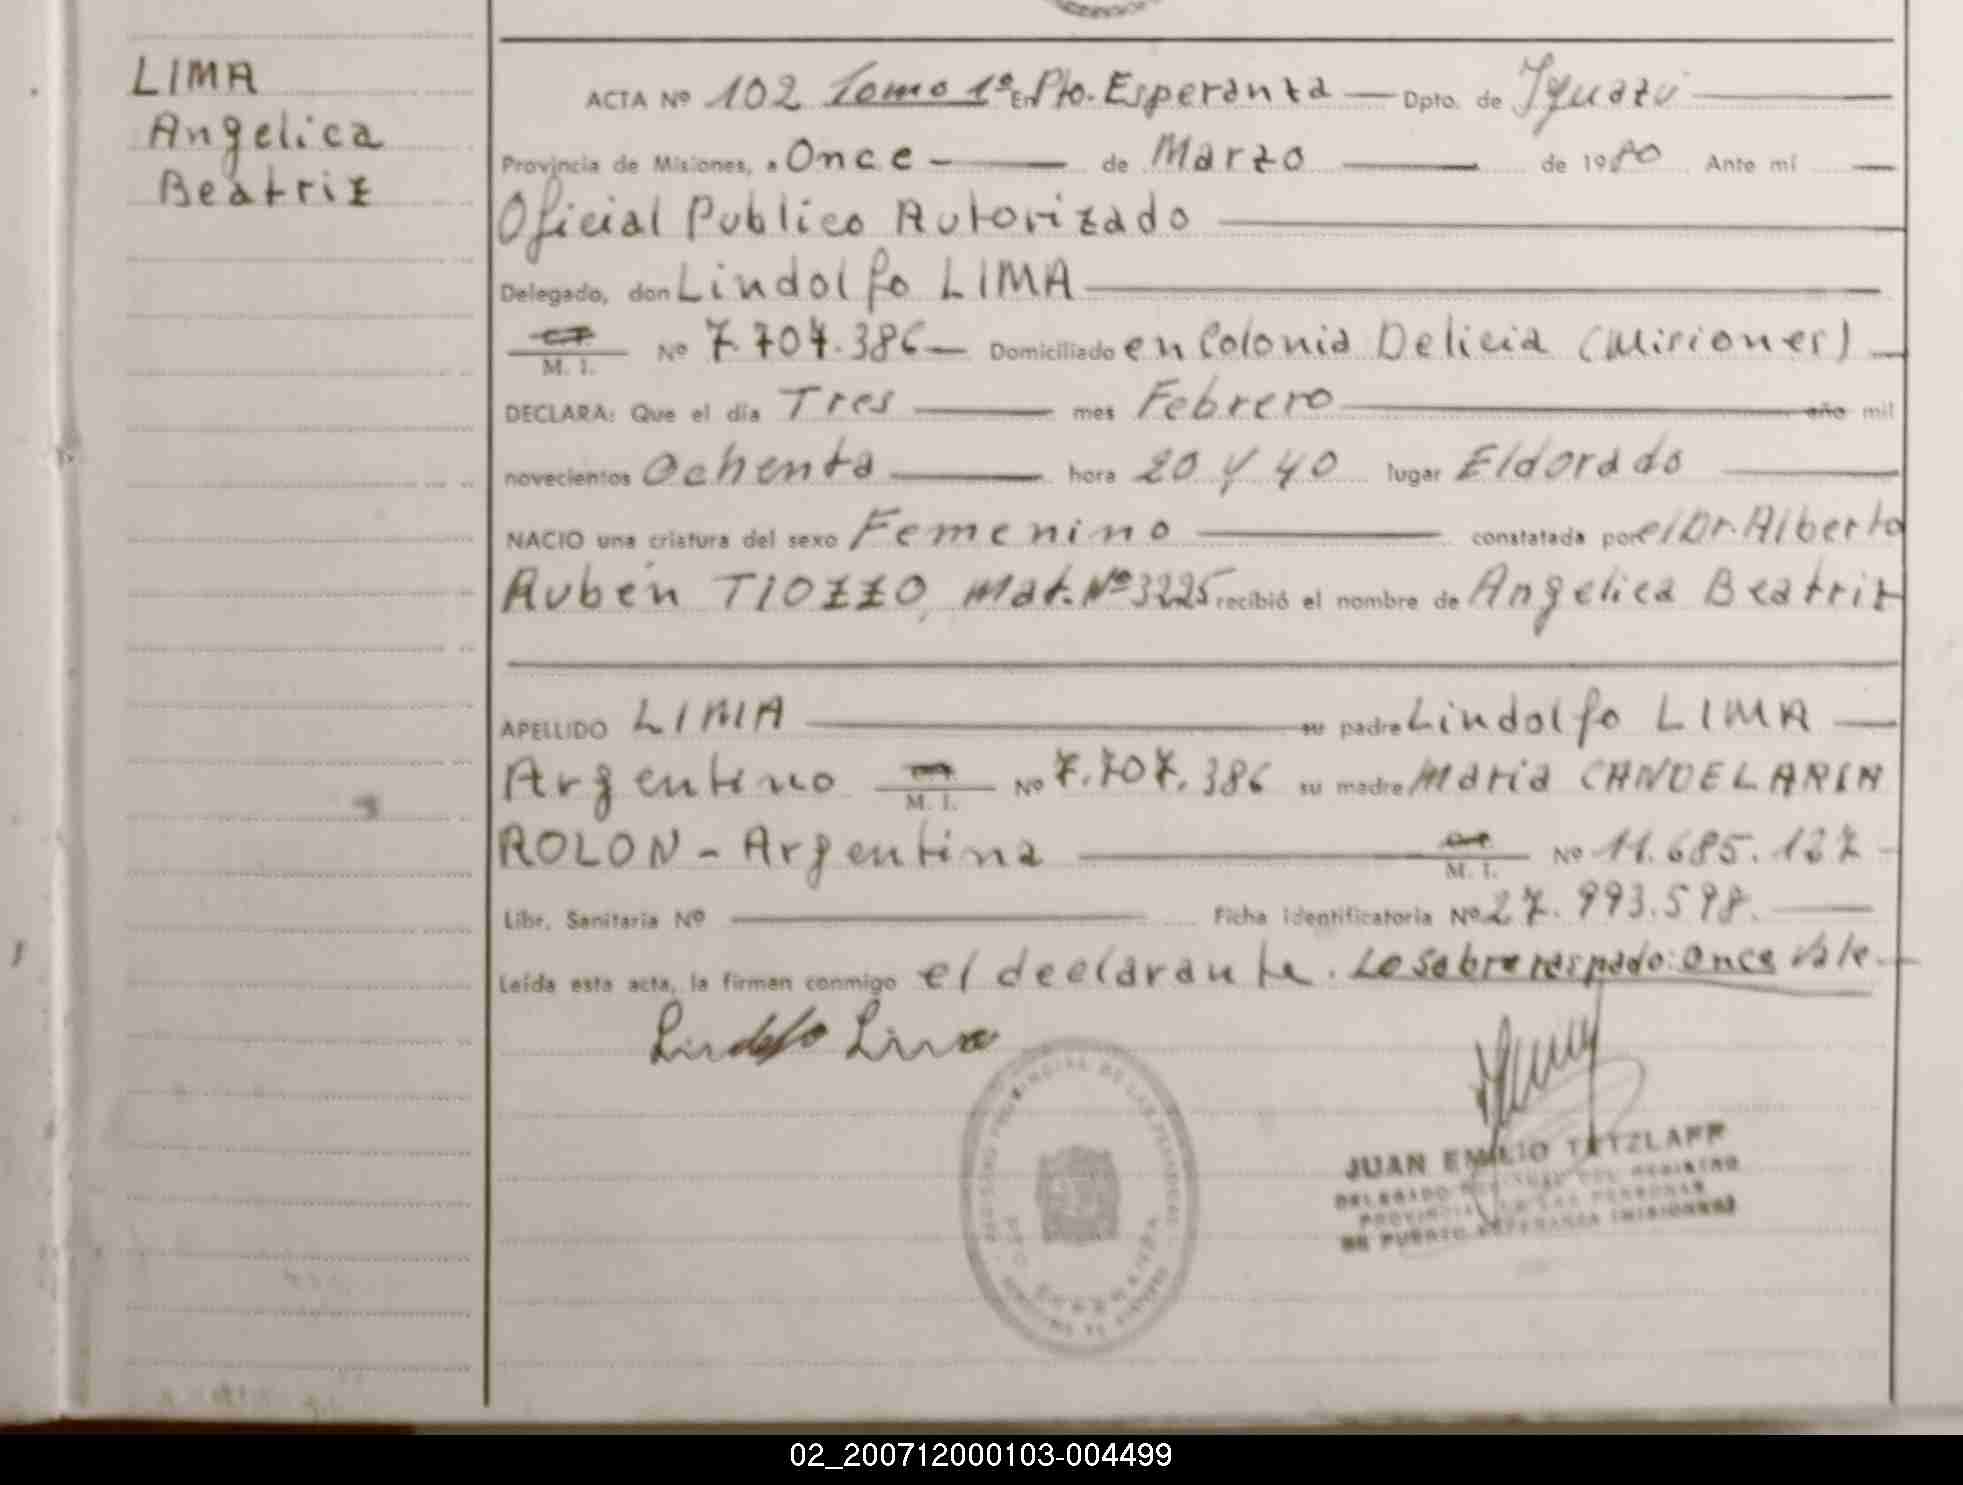 LIMA
Angelica
Beatriz
ACTA Nº 102 Tomo 1º En Pto. Esperanza Dpto. de Iguazú
Provincia de Misiones, a Once de Marzo de 1980 Ante mí
Oficial Publico Autorizado
Delegado, don Lindolfo LIMA
M. I. Nº 7.707.386 Domiciliado en Colonia Delicia (Misiones)
DECLARA: Que el día Tres mes Febrero año mil
novecientos Ochenta hora 20 y 40 lugar Eldorado
NACIO una criatura del sexo Femenino constatada por el Dr. Alberto
Rubén TIOZZO, Mat. Nº 3225 recibió el nombre de Angelica Beatriz
APELLIDO LIMA su padre Lindolfo LIMA
Argentino M. I. Nº 7.707.386 su madre Maria CANDELARIA
ROLON - Argentina M. I. Nº 11.685.127
Libr. Sanitaria Nº Ficha identificatoria Nº 27.993.598.
Leída esta acta, la firman conmigo el declarante. Lo sobrerraspado: Once Vale
Lindolfo Lima
JUAN EMILIO TETZLAFF
DELEGADO DEL REGISTRO
PROVINCIAL DE LAS PERSONAS
DE PUERTO ESPERANZA (MISIONES)
PTO ESPERANZA
02_200712000103-004499